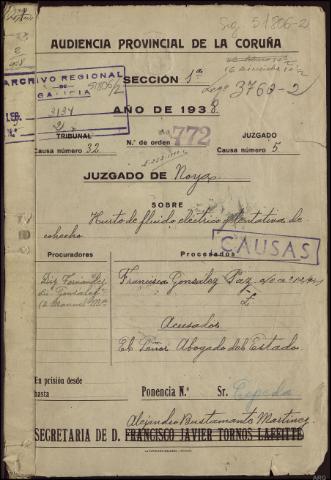 Sig. 51806-2
AUDIENCIA PROVINCIAL DE LA CORUÑA
ARCHIVO REGIONAL
DE
GALICIA
51806/2
SECCIÓN 1ª
Lego 3763-2
AÑO DE 1938
TRIBUNAL
N.º de orden 772
JUZGADO
Causa número 32
Causa número 5
JUZGADO DE Noya
SOBRE
Hurto de fluido eléctrico y tentativa de
cohecho
CAUSAS
Procuradores
Procesados
Luis Fernandez
Francisca Gonzalez Paz
Acusados
El Señor Abogado del Estado
En prisión desde
hasta
Ponencia N.º
Sr. Cepeda
Alejandro Bustamante Martinez
SECRETARIA DE D. FRANCISCO JAVIER TORNOS LAFFITTE